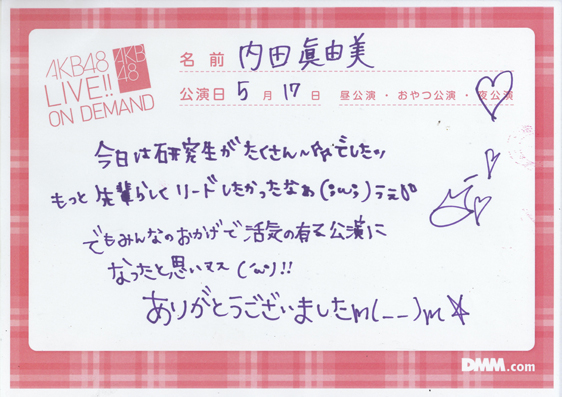 AKB48
LIVE!!
ON DEMAND
AKB
48
名前 内田眞由美
公演日 5月17日 昼公演・おやつ公演・夜公演
今日は研究生がたくさん〜でしたッ
もっと先輩らしくリードしたかったなぁ(;ω;)うぇ
でもみんなのおかげで活気の有る公演に
なったと思いマス(´ω`)!!
ありがとうございましたm(__)m☆
DMM.com